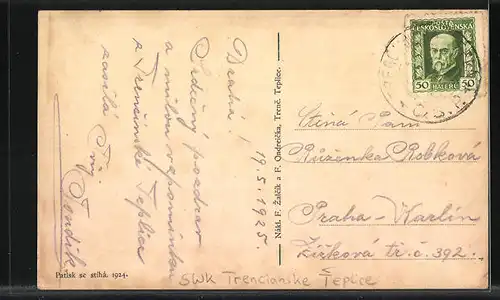 Drahá!
Srdečný pozdrav
a milou vzpomínku
z Trenčínské Teplice
zasílá Tvůj
19. 5. 1925.
Patisk se stíhá. 1924.
Nákl. F. Žalčík a F. Ondreička, Trenč. Teplice.
POŠTA
ČESKOSLOVENSKÁ
50 HALÉŘŮ 50
Č.S.P.
Ctěná Paní
Růženka Robková
Praha-Karlín
Žižková tř. č. 392.
SWK Trencianske Teplice